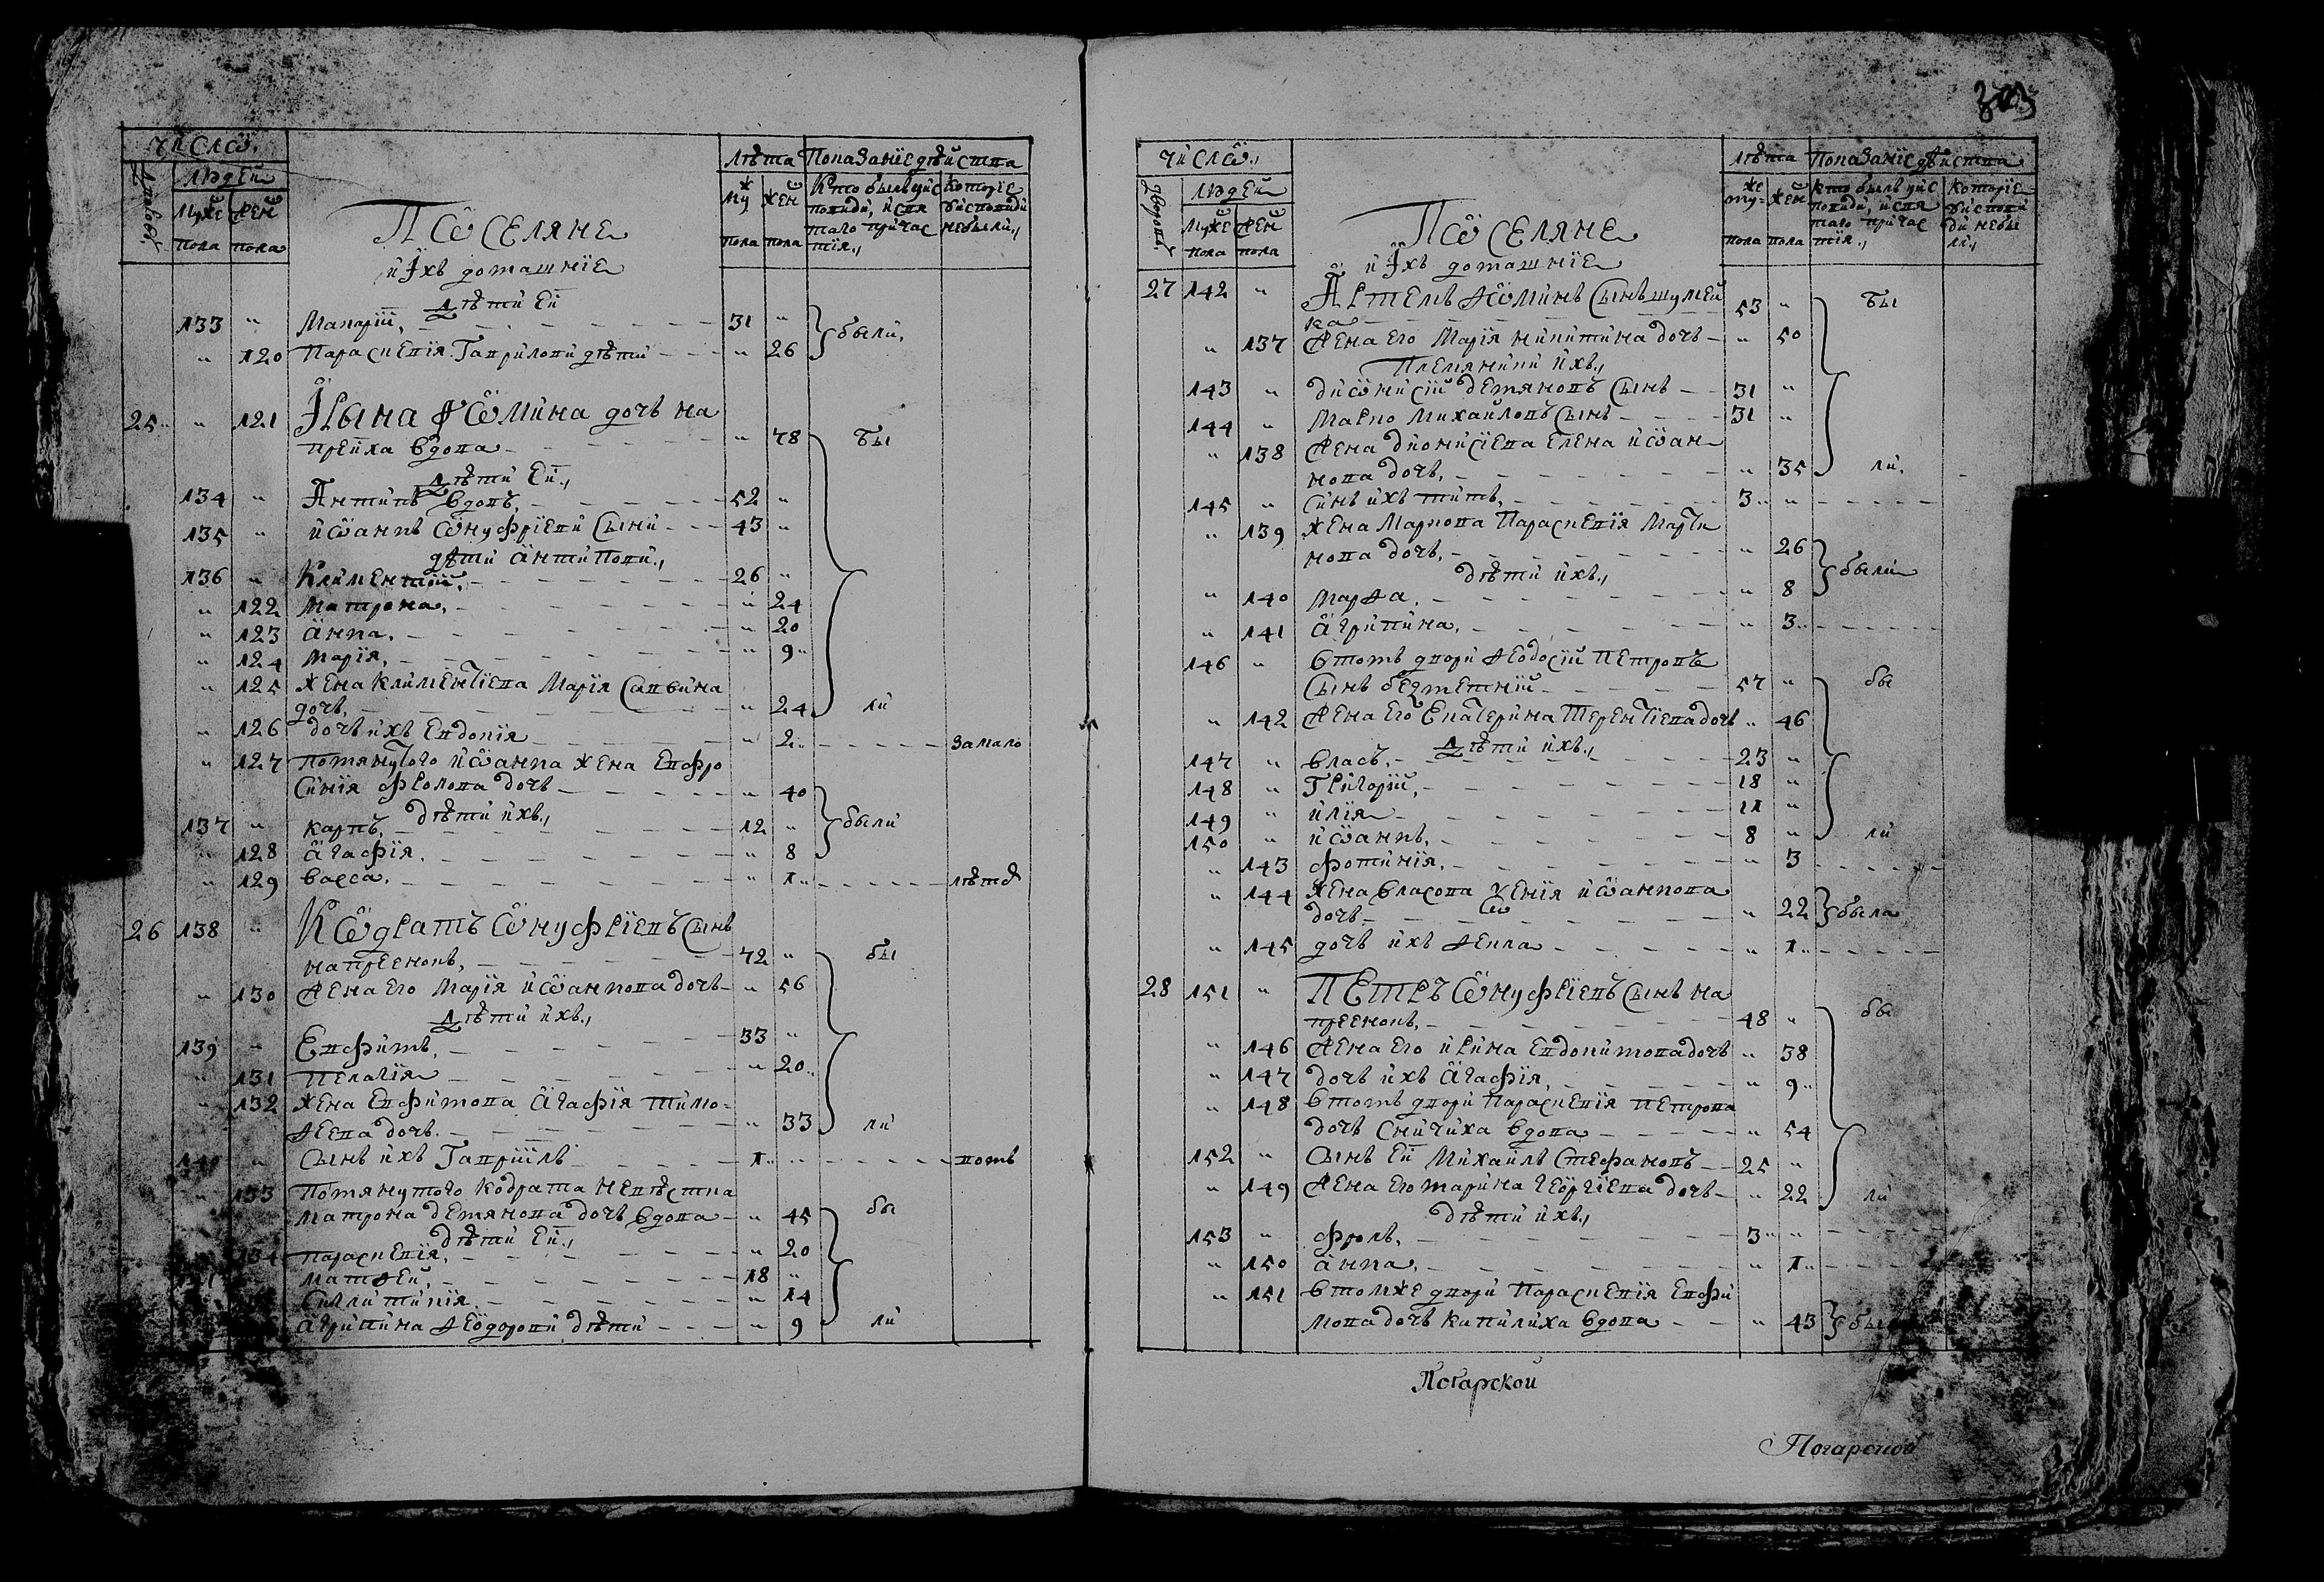 число.
Дворовъ
людей
Муже пола
Жен пола
Поселяне
и ихъ домашніе
Лѣта
Му пола
Жен пола
Показаніе дѣйства
Кто былъ у исповѣди, и святаго причастія.,
Которіе у исповѣди небыли.,
Дѣти Ей
133 " Макарій, 31 "
" 120 Параскевія Гавриловы дѣти " 26 были,
25 " 121 Ирына Ѳомина дочь на
преиха вдова " 78 бы
Дѣти Ей.,
134 " Антипъ вдовъ, 52 "
135 " иѡаннъ Ѡнуфріевы сыны 43 "
дѣти антиповы.,
136 " Климентій, 26 "
" 122 Матрона, " 24
" 123 анна, " 20
" 124 марія, " 9
" 125 жена климентіева Марія Саввина
дочь, " 24 ли
" 126 дочь ихъ Евдокія " 2 за мало
" 127 помянутого иѡанна жена Евфро
синія фролова дочь " 40
дѣти ихъ.,
137 " карпъ, 12 " были
" 128 агафія, " 8
" 129 васса, " 1 лѣтст
26 138 " Кѡдратъ Ѡнуфріевъ сынъ
напреенокъ, 72 " бы
" 130 Жена его Марія иѡаннова дочь " 56
Дѣти ихъ.,
139 " Евфимъ, 33 "
" 131 пелагія " 20
" 132 жена Евфимова агафія тимо=
ѳеева дочь " 33 ли
140 " Сынъ ихъ Гавріилъ 1 " вомъ
" 133 помянутого кодрата невѣстка
матрона демянова дочь вдова " 45 бы
дѣти Ей.,
134 параскевія, " 20
матѳей, 18 "
" 14
агрипина ѳеодоровы дѣти " 9 ли
303
число.,
дворовъ,
людей
Муже пола
Жен пола
Поселяне
и ихъ домашніе
лѣта
му= пола
жен пола
Показаніе дѣйства
кто былъ у исповѣди, и святаго причастія.,
которіе у исповѣди небыли.,
27 142 " Артемъ Ѳоминъ сынъ шулей
ка 53 " бы
" 137 Жена его Марія никитина дочь " 50
Племяники ихъ.,
143 " диѡнисій демяновъ сынъ 31 "
144 " Марко михайловъ сынъ 31 "
" 138 Жена дионисіева Елена иѡан
нова дочь, " 35 ли,
145 " Синъ ихъ титъ, 3 "
" 139 жена маркова Параскевія марти
нова дочь, " 26
дѣти ихъ., были
" 140 марѳа, " 8
" 141 агрипина, " 3
146 " втомъ дворѣ ѳеодосій петровъ
сынъ бездметній 57 " бы
" 142 Жена его Екатерина терентіева дочь " 46
Дѣти ихъ.,
147 " власъ, 23 "
148 " Григорій, 18 "
149 " илія 11 "
150 " иѡаннъ, 8 " ли
" 143 фотинія, " 3
" 144 жена власова ѯенія иѡаннова
дочь " 22 была
" 145 дочь ихъ ѳекла " 1
28 151 " Петръ Ѡнуфріевъ сынъ на
преенокъ, 48 " бы
" 146 Жена его ирина Евдокимова дочь " 38
" 147 дочь ихъ агафія, " 9
" 148 втомъ дворѣ параскевія петрова
дочь сничиха вдова " 54
152 " Сынъ Ей михаилъ Стефановъ 25 "
" 149 Жена его марина геѡргіева дочь " 22 ли
дѣти ихъ.,
153 " фролъ, 3 "
" 150 анна, " 1
" 151 втомже дворѣ параскевія Евфи
мова дочь капилиха вдова " 43 была
Погарской
Погарской